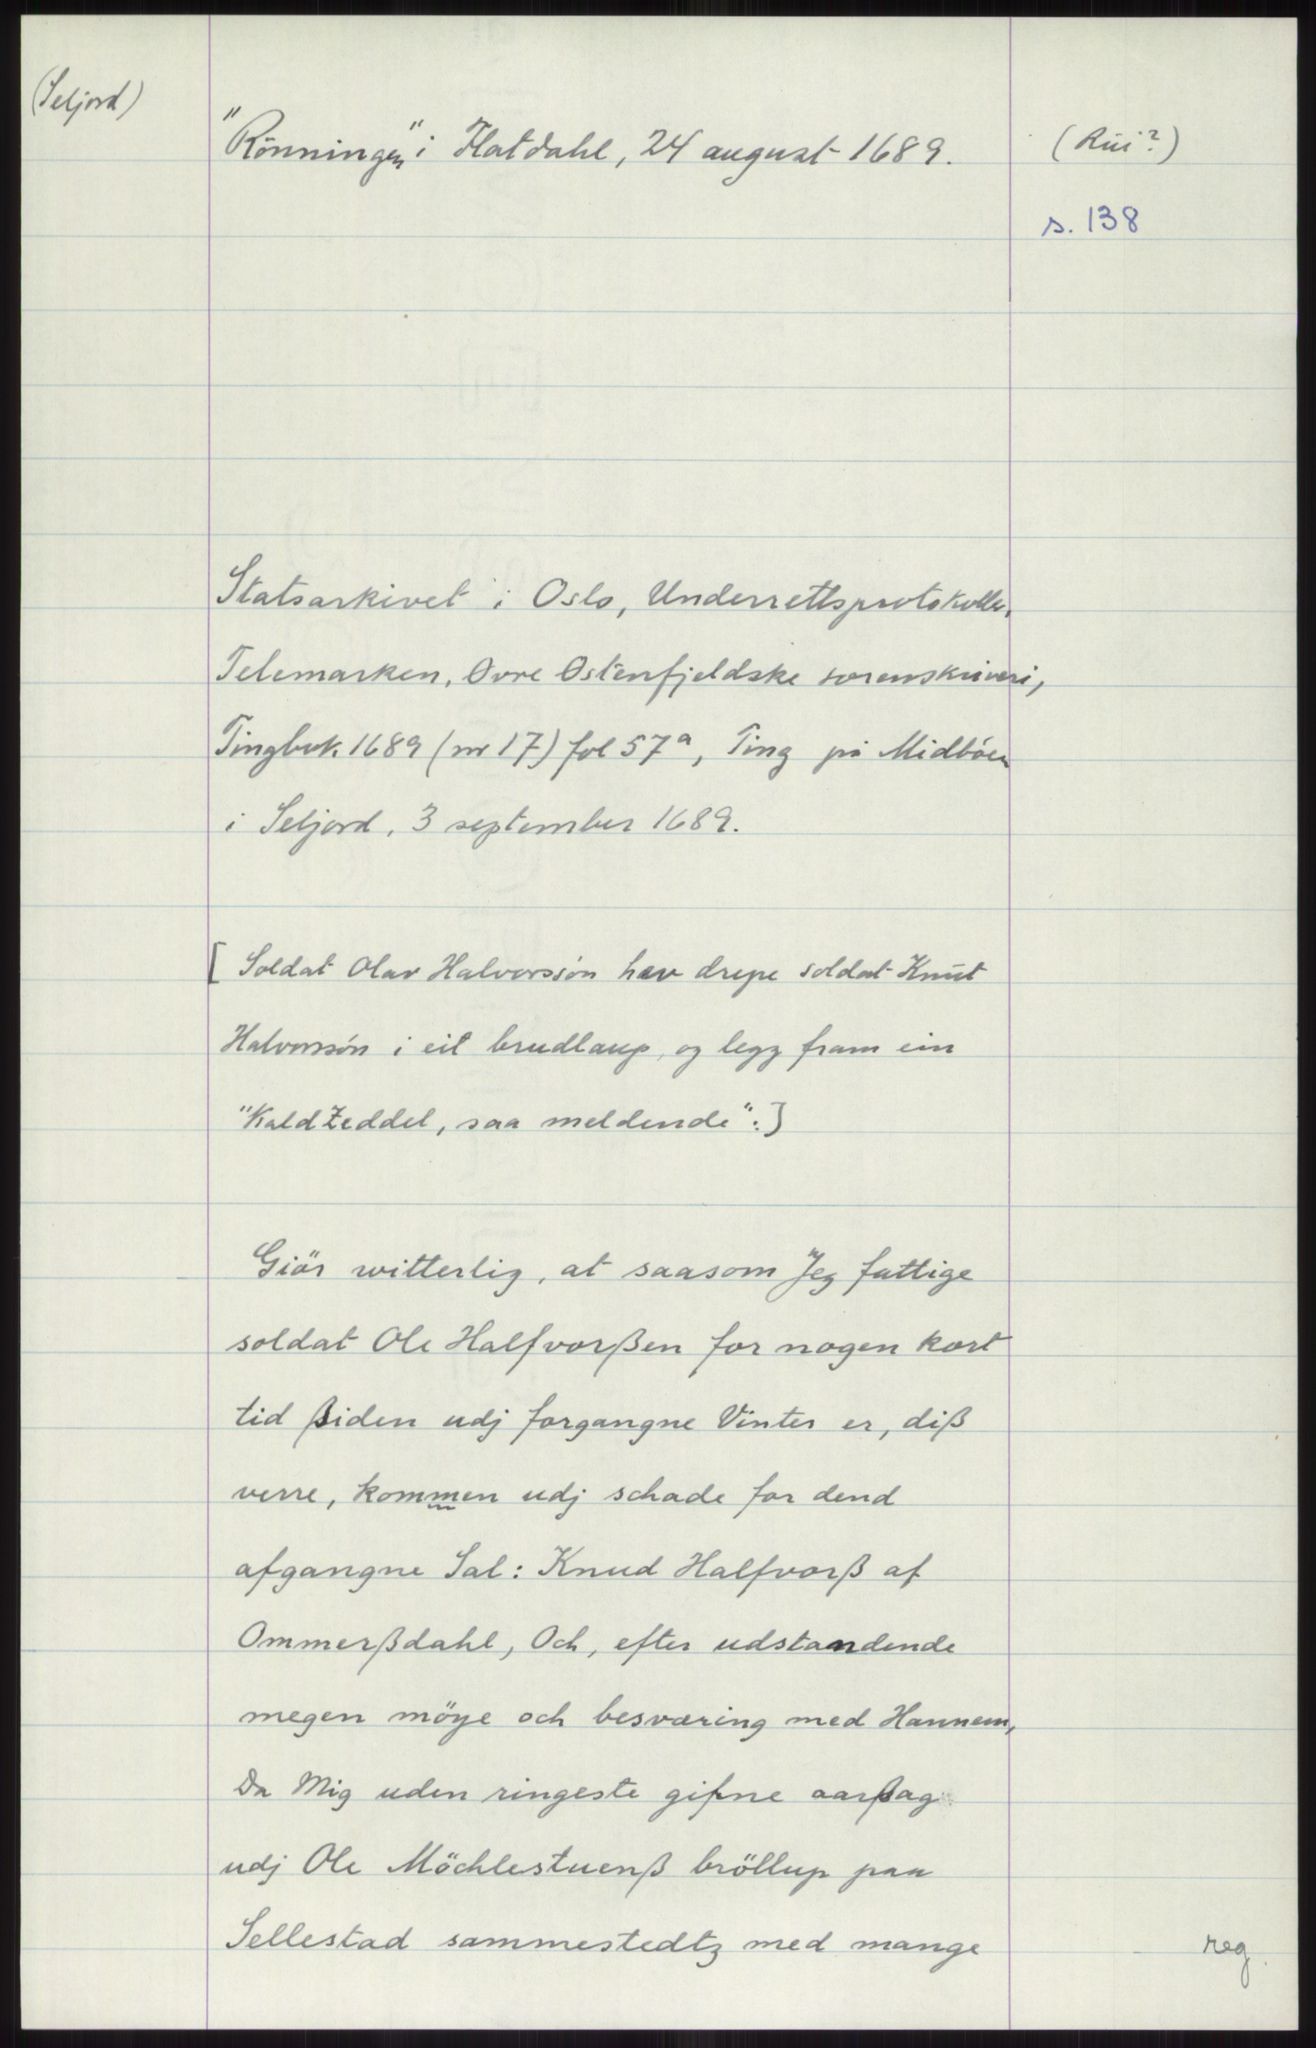 (Seljord)
"Rönningen" i Flatdahl, 24 august 1689.
(Rui?)
s. 138
Statsarkivet i Oslo, Underrettsprotokoller,
Telemarken, Øvre Østenfjeldske sorenskriveri,
Tingbok 1689 (nr 17) fol 57a, Ting på Midbøen
i Seljord, 3 september 1689.
[Soldat Olav Halvorssön hev drepe soldat Knut
Halvorssön i eit brudlaup, og legg fram ein
"Kald Zeddel, saa meldende":]
Giör witterlig, at saasom Jeg fattige
soldat Ole Halfvorßen for nogen kort
tid ßiden udj forgangne Vinter er, diß
verre, kommen udj schade for dend
afgangne Sal: Knud Halfvorß af
Ommerßdahl, Och, efter udstandende
megen möye och besværing med Hannem,
Da Mig uden ringeste gifne aarßag
udj Ole Möchlestuenß bröllup paa
Sellestad sammestedtz med mange
reg.